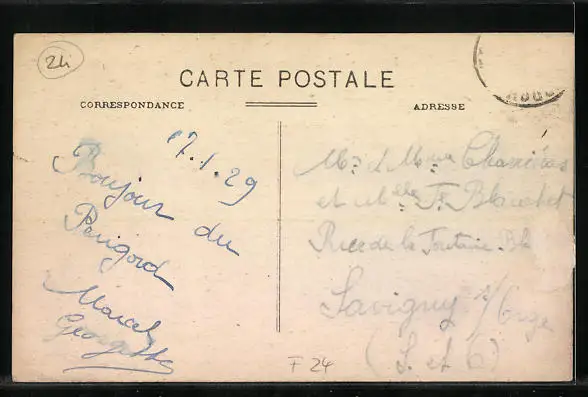 24
CARTE POSTALE
CORRESPONDANCE
ADRESSE
17.1.29
Bonjour du
Périgord
Marcel
Georgette
Mr & Mme
et Mlle Blanchet
Rue de la Fontaine
Savigny s/Orge
(S. et O)
F 24